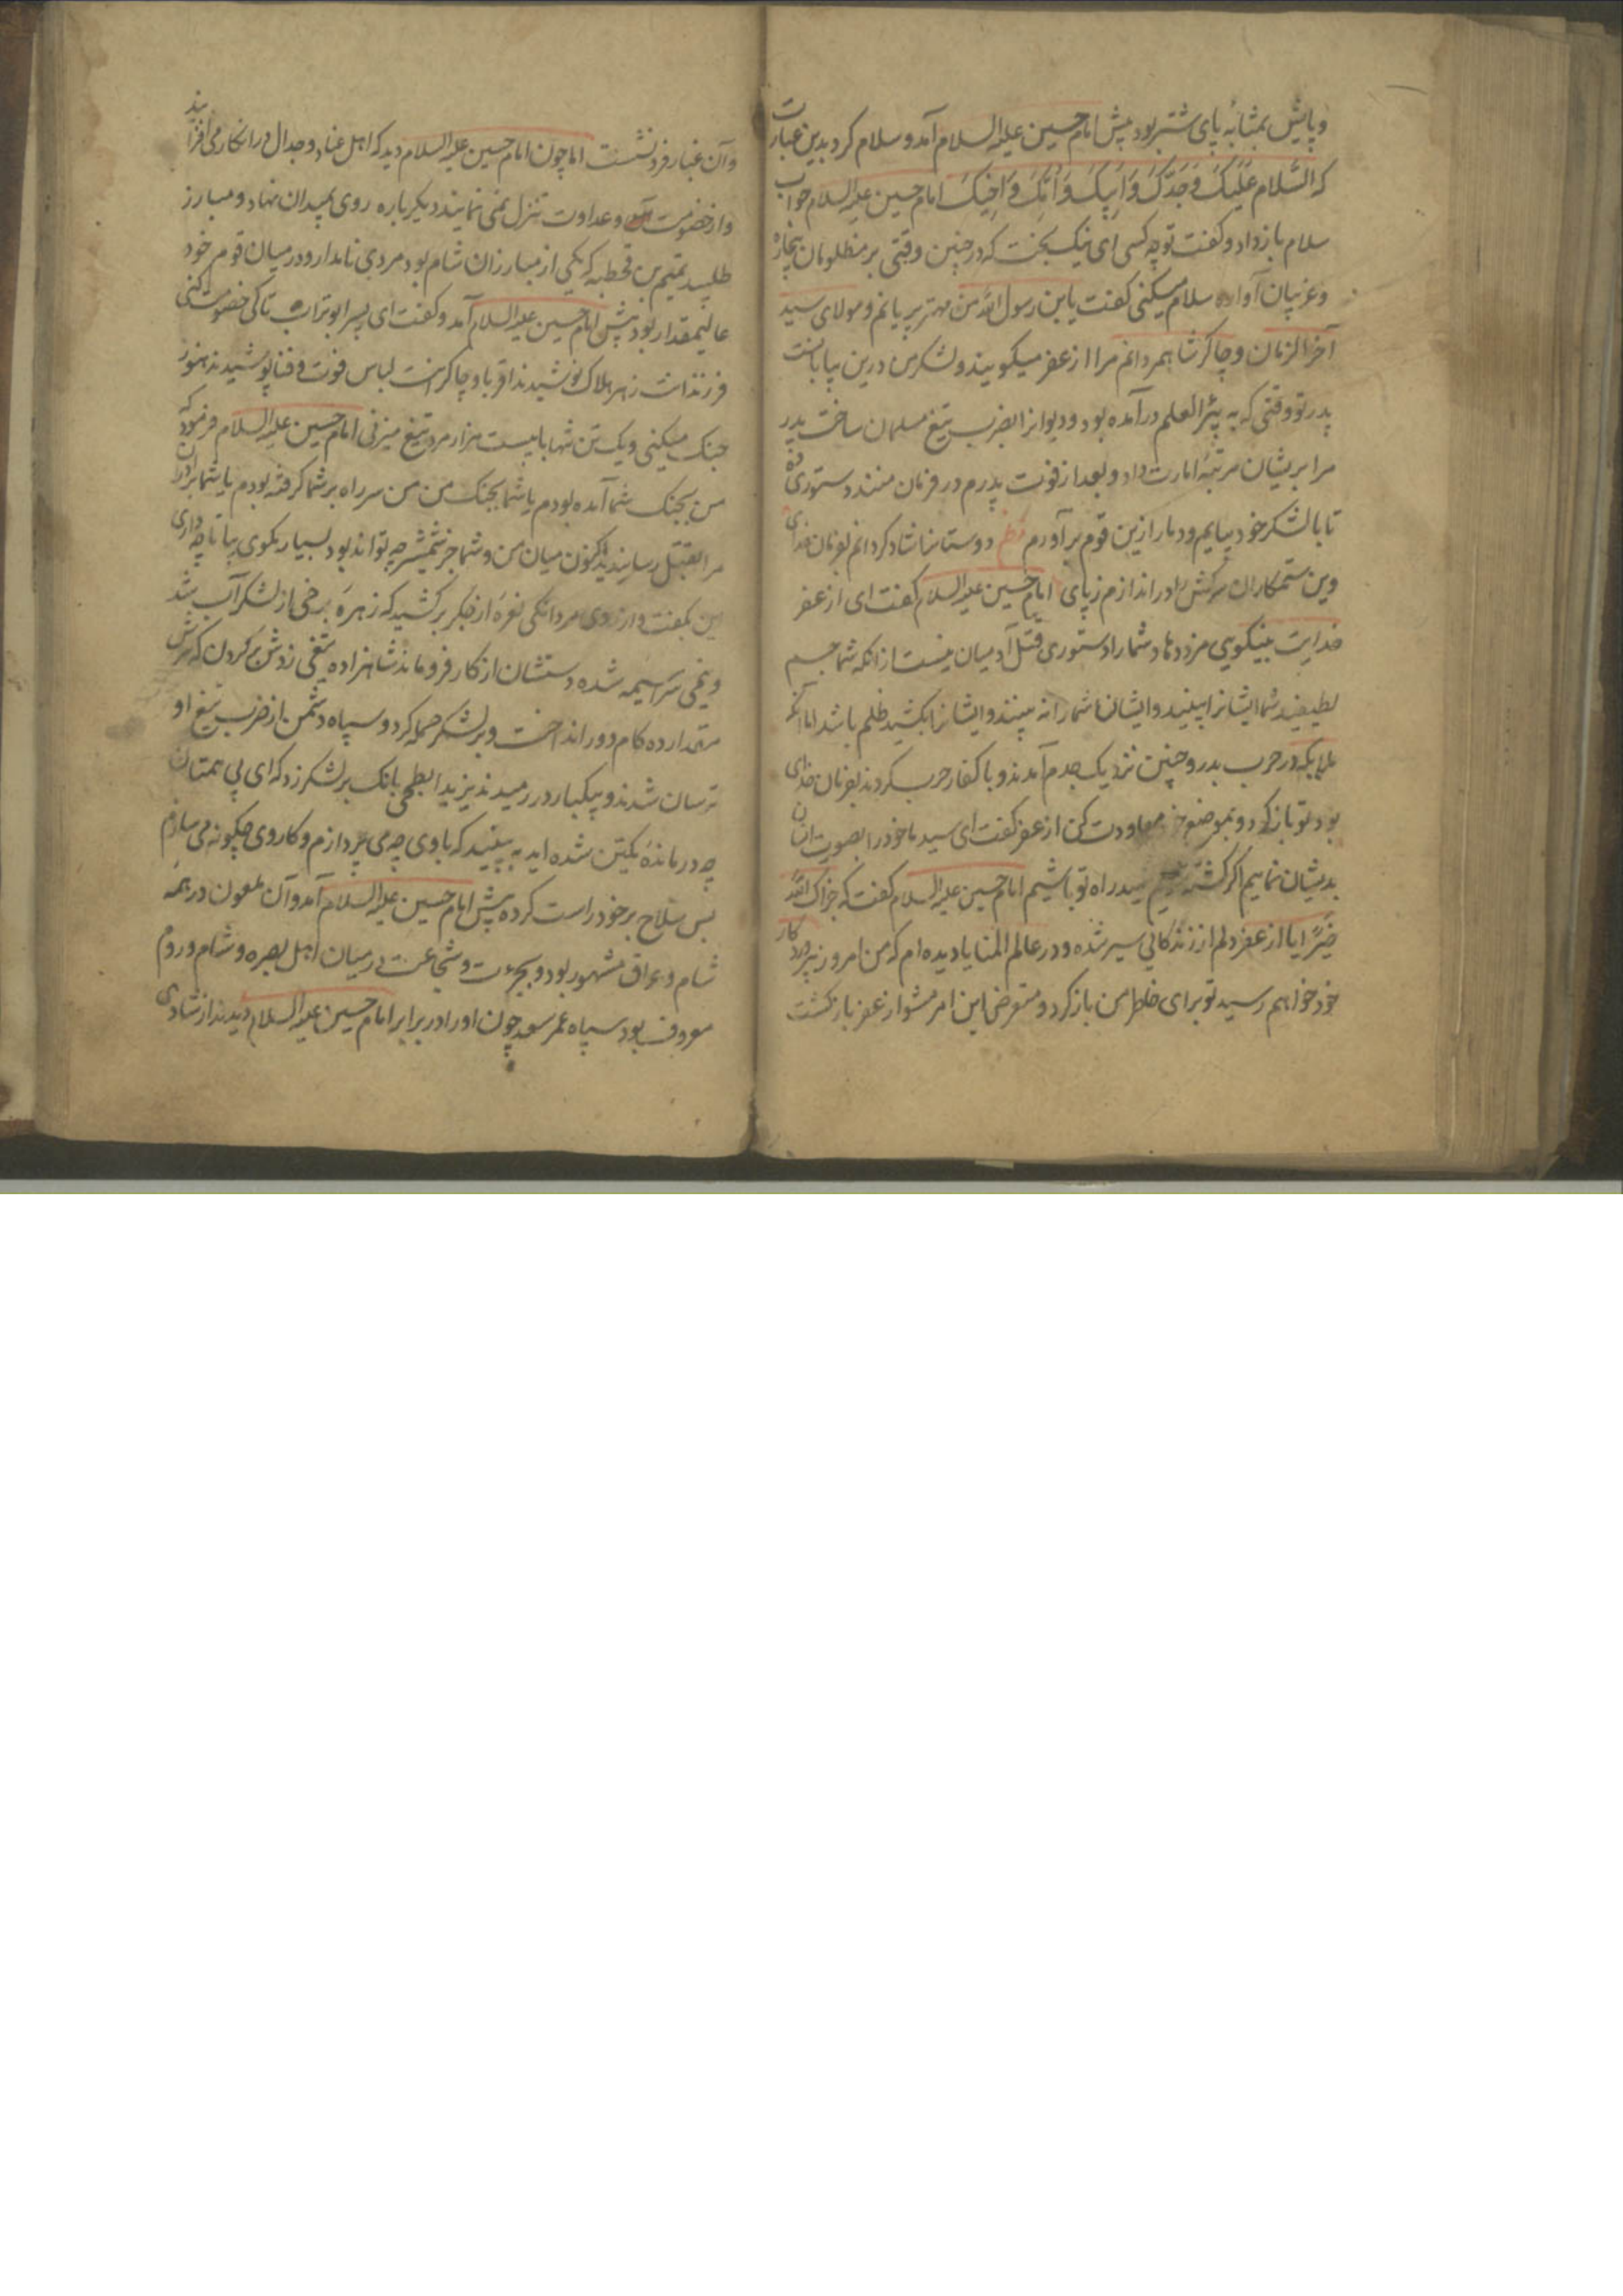 و پایش بمثابه پای شتر بود پیش امام حسین علیه السلام آمد و سلام کرد بدین عبارت
که السَّلام عَلَیکَ وَ جَدِّکَ وَ اَبیکَ وَ اُمِّکَ وَ اَخیکَ امام حسین علیه السلام جواب
سلام باز داد و کفت تو چه کسی ای نیک بخت که در چنین وقتی بر مظلومان بیچاره
و غریبان آواره سلام میکنی کفت یا ابن رسول الله من مهتر پریانم و مولای سید
آخر الزمان و چاکر شاه مردانم مرا ازعفر میکویند و لشکر من درین بیابانست
پدر تو وقتی که به بئر العلم در آمده بود و دیوانرا بضرب تیغ مسلمان ساخت پدر
مرا بریشان مرتبهٔ امارت داد و بعد از فوت پدرم در فرمان منند دستوری ده
تا با لشکر خود بیایم و دمار ازین قوم بر آورم نظم دوستانرا شاد کردانم بفرمان خدای
وین ستمکاران سرکش را در اندازم ز پای امام حسین علیه السلام کفت ای ازعفر
خدایت بنیکویی مزد دهاد شما را دستوری قتل آدمیان نیست از انکه شما جسم
لطیفید شما ایشانرا ببینید و ایشان شما را نه بینند و ایشانرا بکشید ظلم باشد اما آنکه
ملایکه در حرب بدر و حنین نزدیک جدم آمدند و با کفار حرب کردند بفرمان خدای
بود تو باز کرد و بموضع خود معاودت کن ازعفر کفت ای سید ما خود را بصورت انسان
بدیشان نماییم اکر کشته شویم شهید راه تو باشیم امام حسین علیه السلام کفت که جزاک الله
خیرًا یا ازعفر دلم از زندکانی سیر شده و در عالم المنایا دیده ام که من امروز به پروردکار
خود خواهم رسید تو برای خاطر من باز کرد و متعرض این امر مشو ازعفر باز کشت
و آن غبار فرو نشست اما چون امام حسین علیه السلام دید که اهل عناد و جدال در انکار می افزایند
و از خصومت و عداوت تنزل نمی نمایند دیکر باره روی بمیدان نهاد و مبارز
طلبید تمیم بن قحطبه که یکی از مبارزان شام بود مردی نامدار و در میان قوم خود
عالیمقدار بود پیش امام حسین علیه السلام آمد و کفت ای پسر ابوتراب تا کی خصومت کنی
فرزندانت زهر هلاک نوشیدند اقربا و چاکرانت لباس فوت و فنا پوشیدند هنوز
جنک میکنی و یک تن تنها با بیست هزار مرد تیغ میزنی امام حسین علیه السلام فرمود که
من بجنک شما آمده بودم یا شما بجنک من من سر راه بر شما کرفته بودم یا شما برادران
مرا بقتل رسانیدید اکنون میان من و شما جز شمشیر چه تواند بود بسیار مکوی بیا تا چه داری
این بکفت و از روی مردانکی نعرهٔ از جکر بر کشید که زهرهٔ برخی از لشکر آب شد
و تمیمی سراسیمه شده دستشان از کار فرو ماند شاهزاده تیغی زدش بر کردن که سرش
مقدار ده کام دور انداخت و بر لشکر حمله کرد و سپاه دشمن از ضرب تیغ او
ترسان شدند و بیکبار در رمیدند یزید ابطحی بانک بر لشکر زد که ای بی همتان
چه درماندهٔ یکتن شده اید به بینید که با وی چه می پردازم و کار وی چکونه می سازم
پس سلاح بر خود راست کرده پیش امام حسین علیه السلام آمد و آن ملعون در همه
شام و عراق مشهور بود و بجرأت و شجاعت در میان اهل بصره و شام و روم
معروف بود سپاه عمر سعد چون او را در برابر امام حسین علیه السلام دیدند از شادی